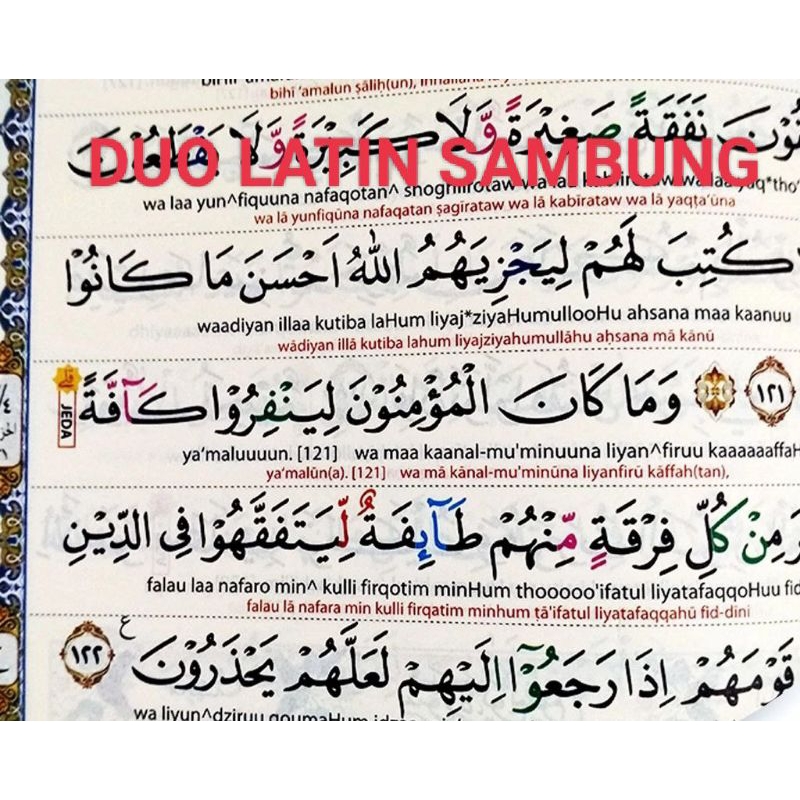 bihī 'amalun ṣāliḥ(un), innallāha lā y
نَفَقَةً صَغِيْرَةً وَّلَا كَبِيْرَةً وَّلَا يَقْطَعُوْنَ
DUO LATIN SAMBUNG
wa laa yun^fiquuna nafaqotan^ shoghiirotaw wa laa kabiirotaw wa laa yaq*tho'
wa lā yunfiqūna nafaqatan ṣagīrataw wa lā kabīrataw wa lā yaqṭa'ūna
كُتِبَ لَهُمْ لِيَجْزِيَهُمُ اللّٰهُ اَحْسَنَ مَا كَانُوْا
waadiyan illaa kutiba laHum liyaj*ziyaHumullooHu ahsana maa kaanuu
wādiyan illā kutiba lahum liyajziyahumullāhu aḥsana mā kānū
١٢١ وَمَا كَانَ الْمُؤْمِنُوْنَ لِيَنْفِرُوْا كَاۤفَّةً
JEDA
ya'maluuuun. [121] wa maa kaanal-mu'minuuna liyan^firuu kaaaaaaffaH
ya'malūn(a). [121] wa mā kānal-mu'minūna liyanfirū kāffah(tan),
مِنْ كُلِّ فِرْقَةٍ مِّنْهُمْ طَاۤىِٕفَةٌ لِّيَتَفَقَّهُوْا فِى الدِّيْنِ
falau laa nafaro min^ kulli firqotim minHum thooooo'ifatul liyatafaqqoHuu fid
falau lā nafara min kulli firqatim minhum ṭā'ifatul liyatafaqqahū fid-dīni
قَوْمَهُمْ اِذَا رَجَعُوْٓا اِلَيْهِمْ لَعَلَّهُمْ يَحْذَرُوْنَ ع ١٢٢
wa liyun^dziruu qoumaHum